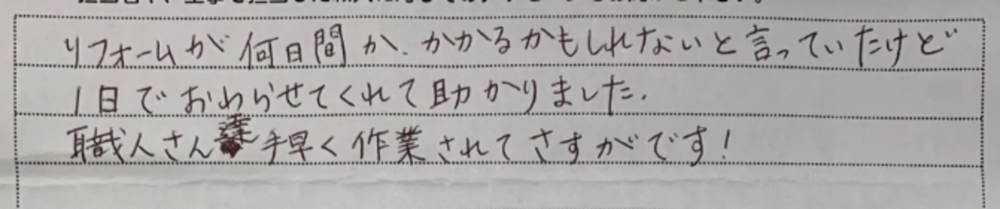 リフォームが何日間か、かかるかもしれないと言っていたけど
1日でおわらせてくれて助かりました。
職人さん達手早く作業されてさすがです!